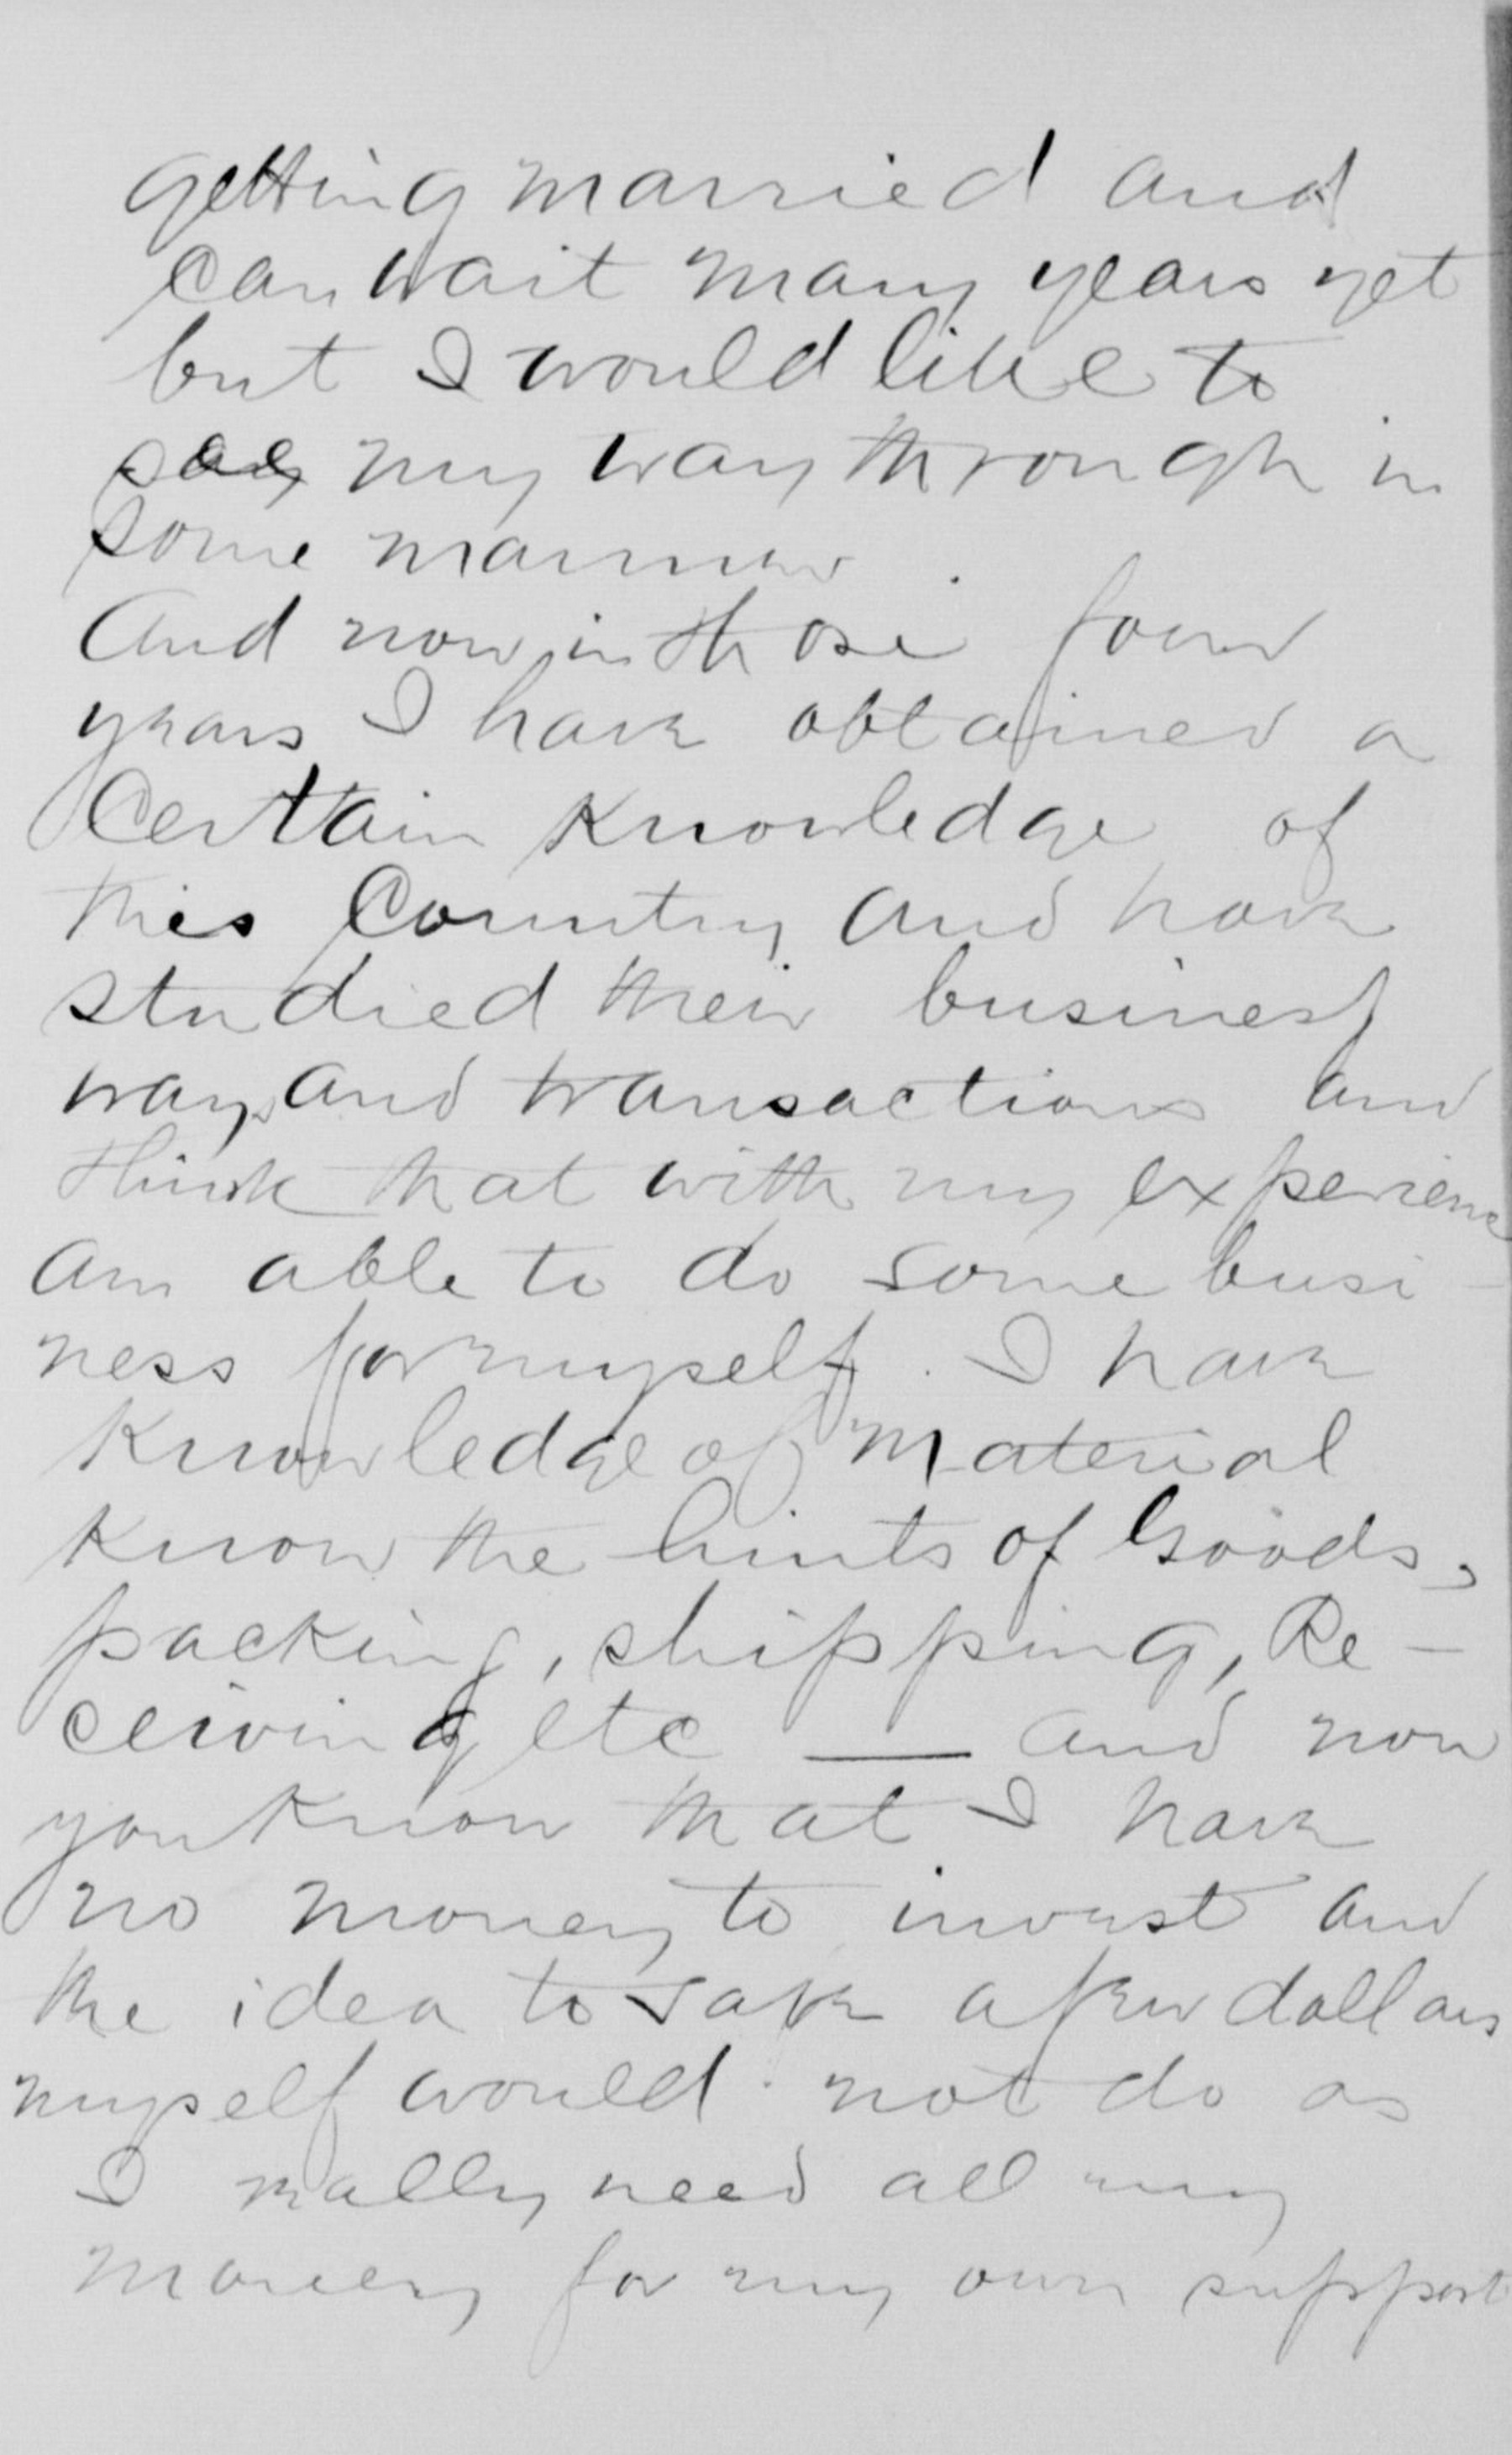 getting married and
can wait many years yet
but I would like to
see my way through in
some manner.
And now in those four
years I have obtained a
Certain Knowledge of
this Country and have
studied their business
ways and transactions and
think that with my experience
am able to do some busi-
ness for myself. I have
Knowledge of material
Know the hints of Goods,
packing, shipping, Re-
ceiving etc — and now
you Know that I have
no money to invest and
the idea to save a few dollars
myself would not do as
I really need all my
money for my own support